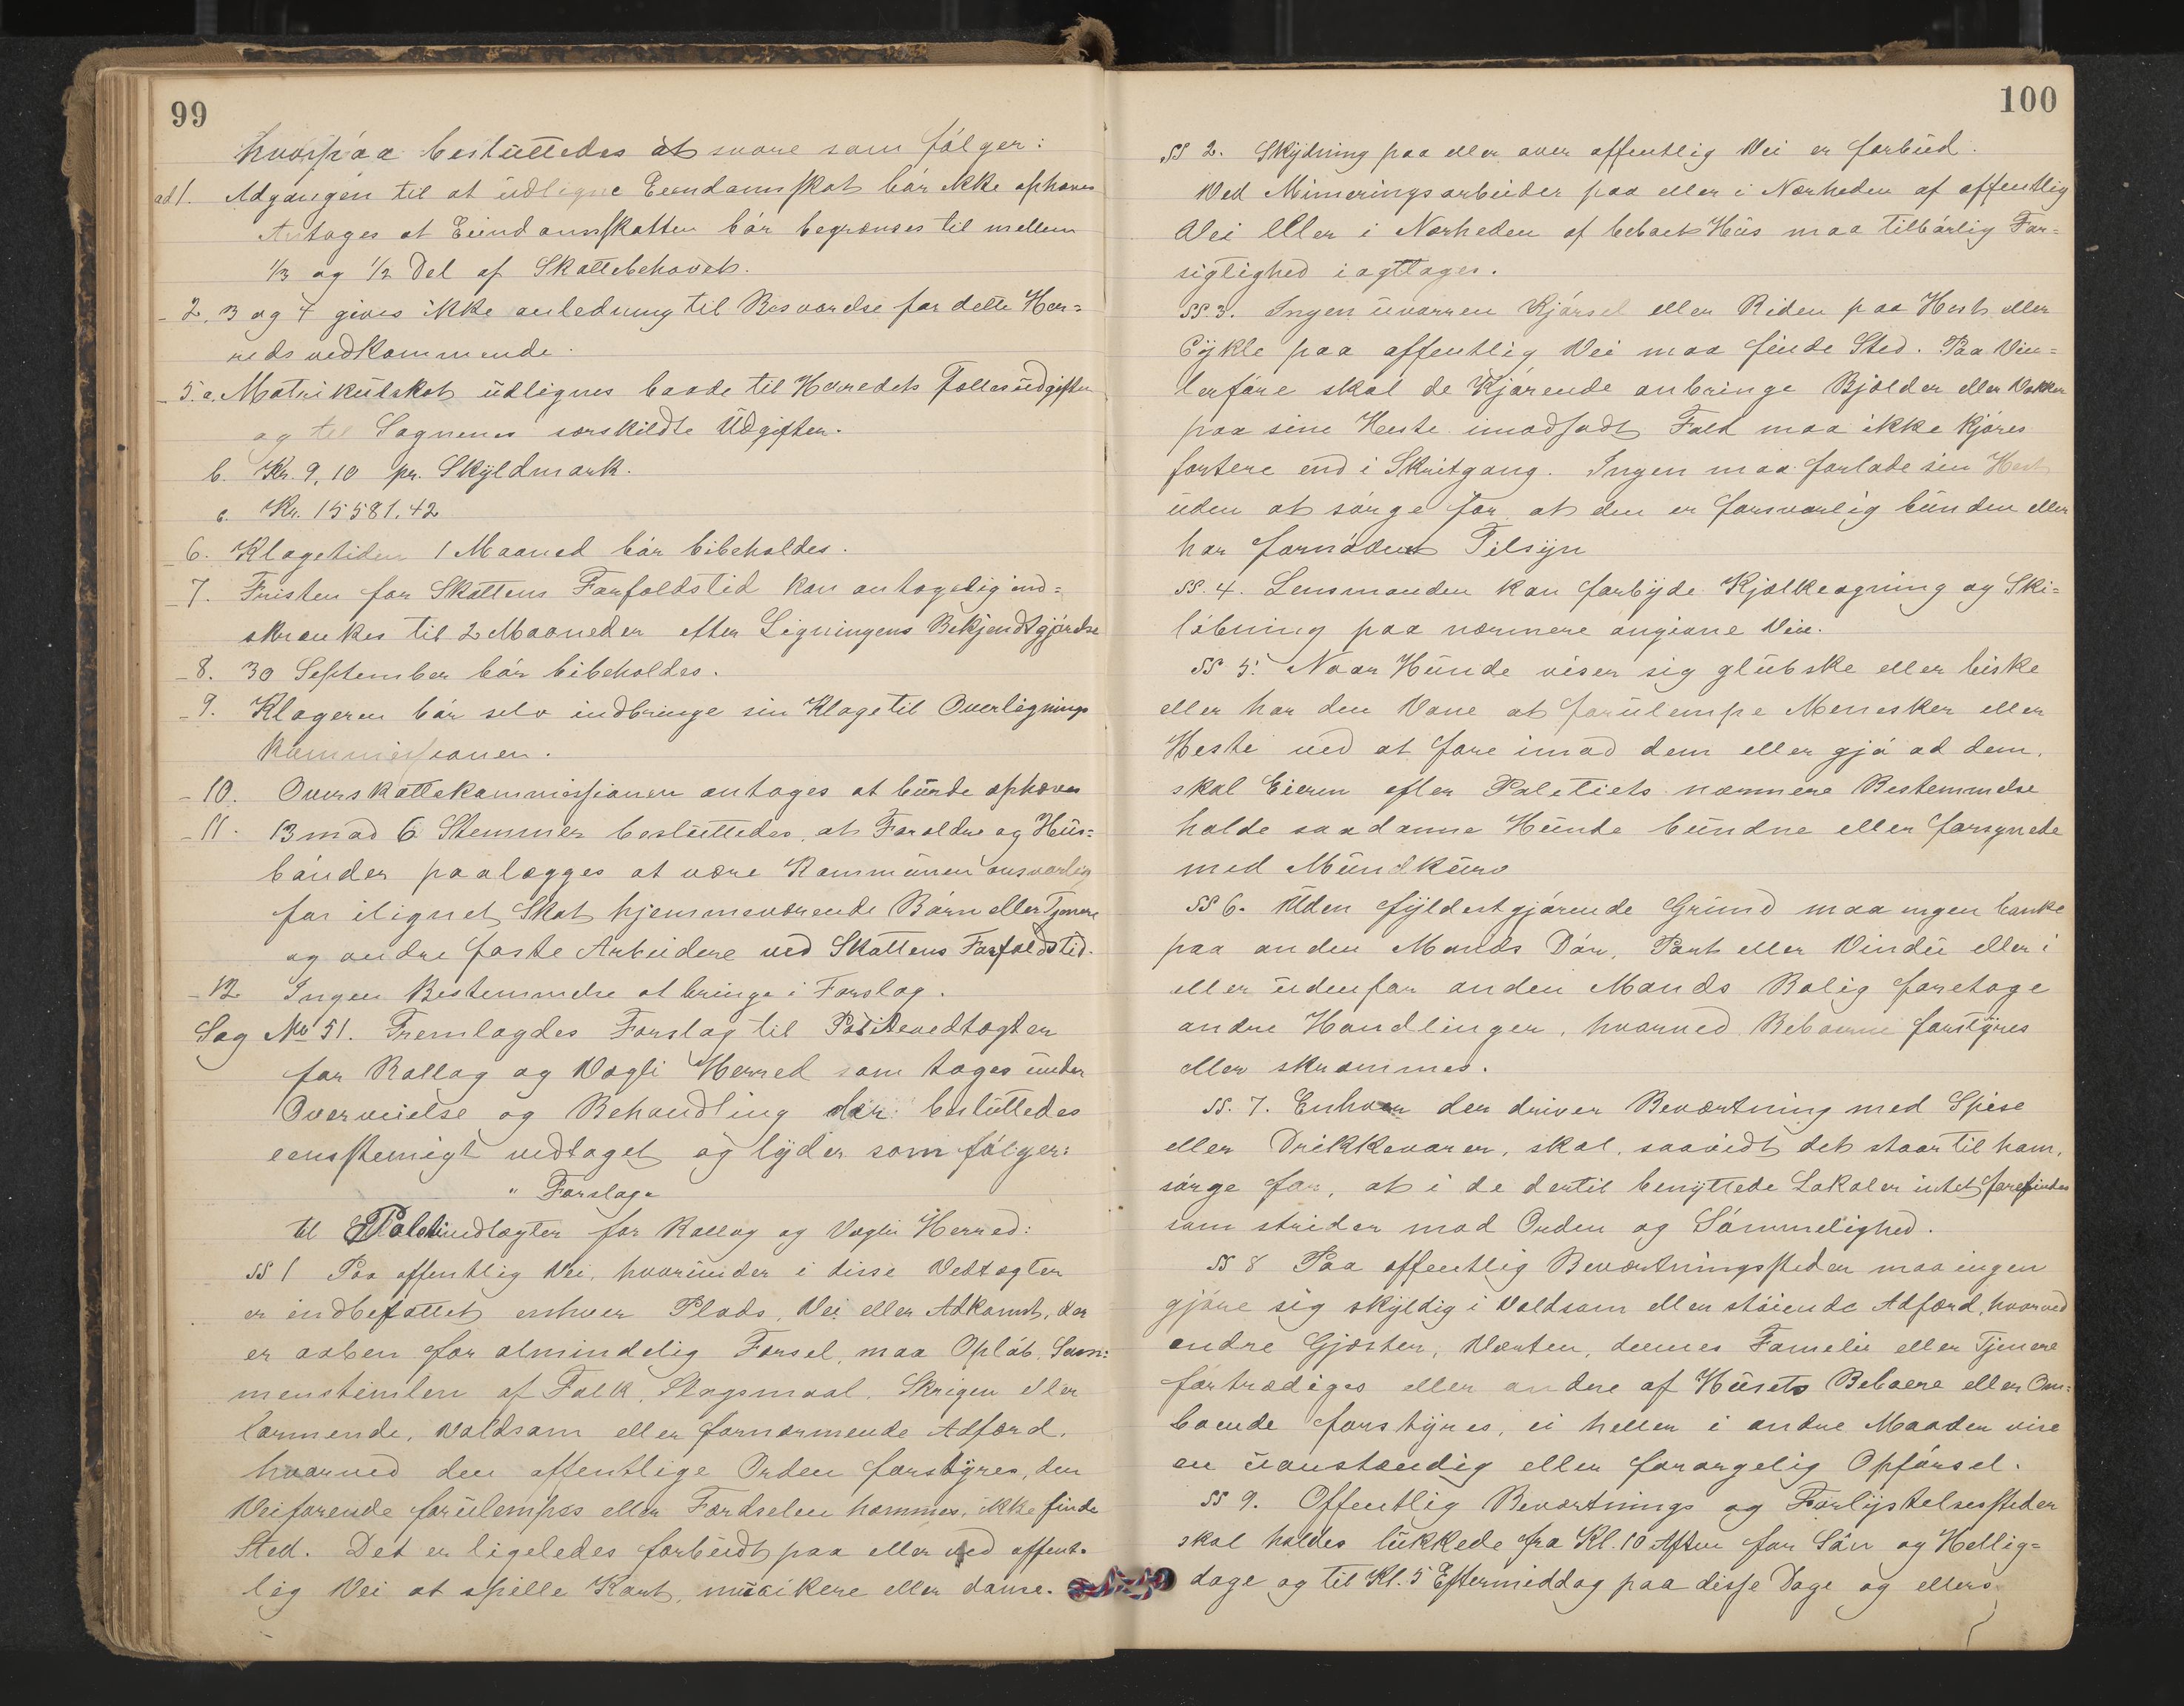 99
hvorpaa besluttedes at svare som følger:
ad 1. Adgangen til at udligne Eiendomsskat bør ikke ophæves
Antages at Eiendomsskatten bør begrænses til mellem
1/3 og 1/2 Del af Skattebehovet.
- 2, 3 og 4 gives ikke anledning til Besvarelse for dette Her=
reds vedkommende.
- 5. a. Matrikulskat udlignes baade til Herredets Fællesudgifter
og til Sognenes særskildte Udgifter.
b. Kr. 9,10 pr. Skyldmark.
c. Kr. 15581.42
- 6. Klagetiden 1 Maaned bør bibeholdes.
- 7. Fristen for Skattens Forfaldstid kan antagelig ind=
skrænkes til 2 Maaneder efter Ligningens Bekjendtgjørelse
- 8. 30 September bør bibeholdes.
- 9. Klageren bør selv indbringe sin Klage til Overlignings
kommissionen.
- 10. Overskattekommissionen antages at burde ophæves
- 11. 13 mod 6 Stemmer besluttedes, at Forældre og Hus=
bønder paalægges at være Kommunen ansvarlig
for ilignet Skat hjemmeværende Børn eller Tjenere
og andre faste Arbeidere ved Skattens Forfaldstid.
- 12 Ingen Bestemmelse at bringe i Forslag.
Sag No 51. Fremlagdes Forslag til Politivedtægter
for Rollag og Vægli Herred som toges under
Overveielse og Behandling der besluttedes
eenstemigt vedtaget og lyder som følger:
" Forslag "
til Politivedtægter for Rollag og Vægli Herred:
§§ 1 Paa offentlig Vei, hvorunder i disse Vedtægter
er indbefattet enhver Plads, Vei eller Adkomst, der
er aaben for almindelig Færsel, maa Opløb, Sam=
menstimlen af Folk, Slagsmaal, Skrigen eller
larmende, voldsom eller fornærmende Adfærd,
hvorved den offentlige Orden forstyres, den
Veifarende forulempes eller Færdselen hæmmes, ikke finde
Sted. Det er ligeledes forbudt paa eller ved offent-
lig Vei at spille Kort, musikere eller danse.
100
§§ 2. Skydning paa eller over offentlig Vei er forbud.
Ved Mineringsarbeider paa eller i Nærheden af offentlig
Vei eller i Nærheden af beboet Hus maa tilbørlig For=
sigtighed iagttages.
§§ 3. Ingen uvarren Kjørsel eller Riden paa Hest eller
Cykle paa offentlig Vei maa finde Sted. Paa Vin=
terføre skal de Kjørende anbringe Bjølder eller
paa sine Heste. imod Folk maa ikke kjøres
fortere end i Skritgang. Ingen maa forlade sin Hest
uden at sørge for at den er forsvarlig bunden eller
har fornødent Tilsyn
§§. 4. Lensmanden kan forbyde Kjælkeagning og Ski=
løbning paa nærmere angivne Veie.
§§ 5. Naar Hunde viser sig glubske eller biske
eller har den Vane at forulempe Menesker eller
Heste ved at fare imod dem eller gjø ad dem,
skal Eieren efter Politiets nærmere Bestemmelse
holde saadanne Hunde bundne eller forsynede
med Mundkurv
§§ 6. Uden fyldestgjørende Grund maa ingen banke
paa anden Mands Dør, Port eller Vindu eller i
eller udenfor anden Mands Bolig foretage
andre Handlinger, hvorved Beboerne forstyres
eller skræmmes.
§§. 7. Enhver der driver Beværtning med Spise
eller Drikkevarer, skal, saavidt det staar til ham,
sørge for, at i de dertil benyttede Lokaler intet forefindes
som strider mod Orden og Sømmelighed.
§§ 8 Paa offentlig Beværtningssteder maa ingen
gjøre sig skyldig i voldsom eller støiende Adfærd, hvorved
andre Gjæster, Værten, dennes Familie eller Tjenere
fortrædiges eller andre af Husets Beboere eller Om=
boende forstyres, ei heller i andre Maader vise
en uanstændig eller forargelig Opførsel.
§§ 9. Offentlig Beværtnings og Forlystelsessteder
skal holdes lukkede fra Kl. 10 Aften før Søn og Hellig=
dage og til Kl. 5 Eftermiddag paa disse Dage og ellers